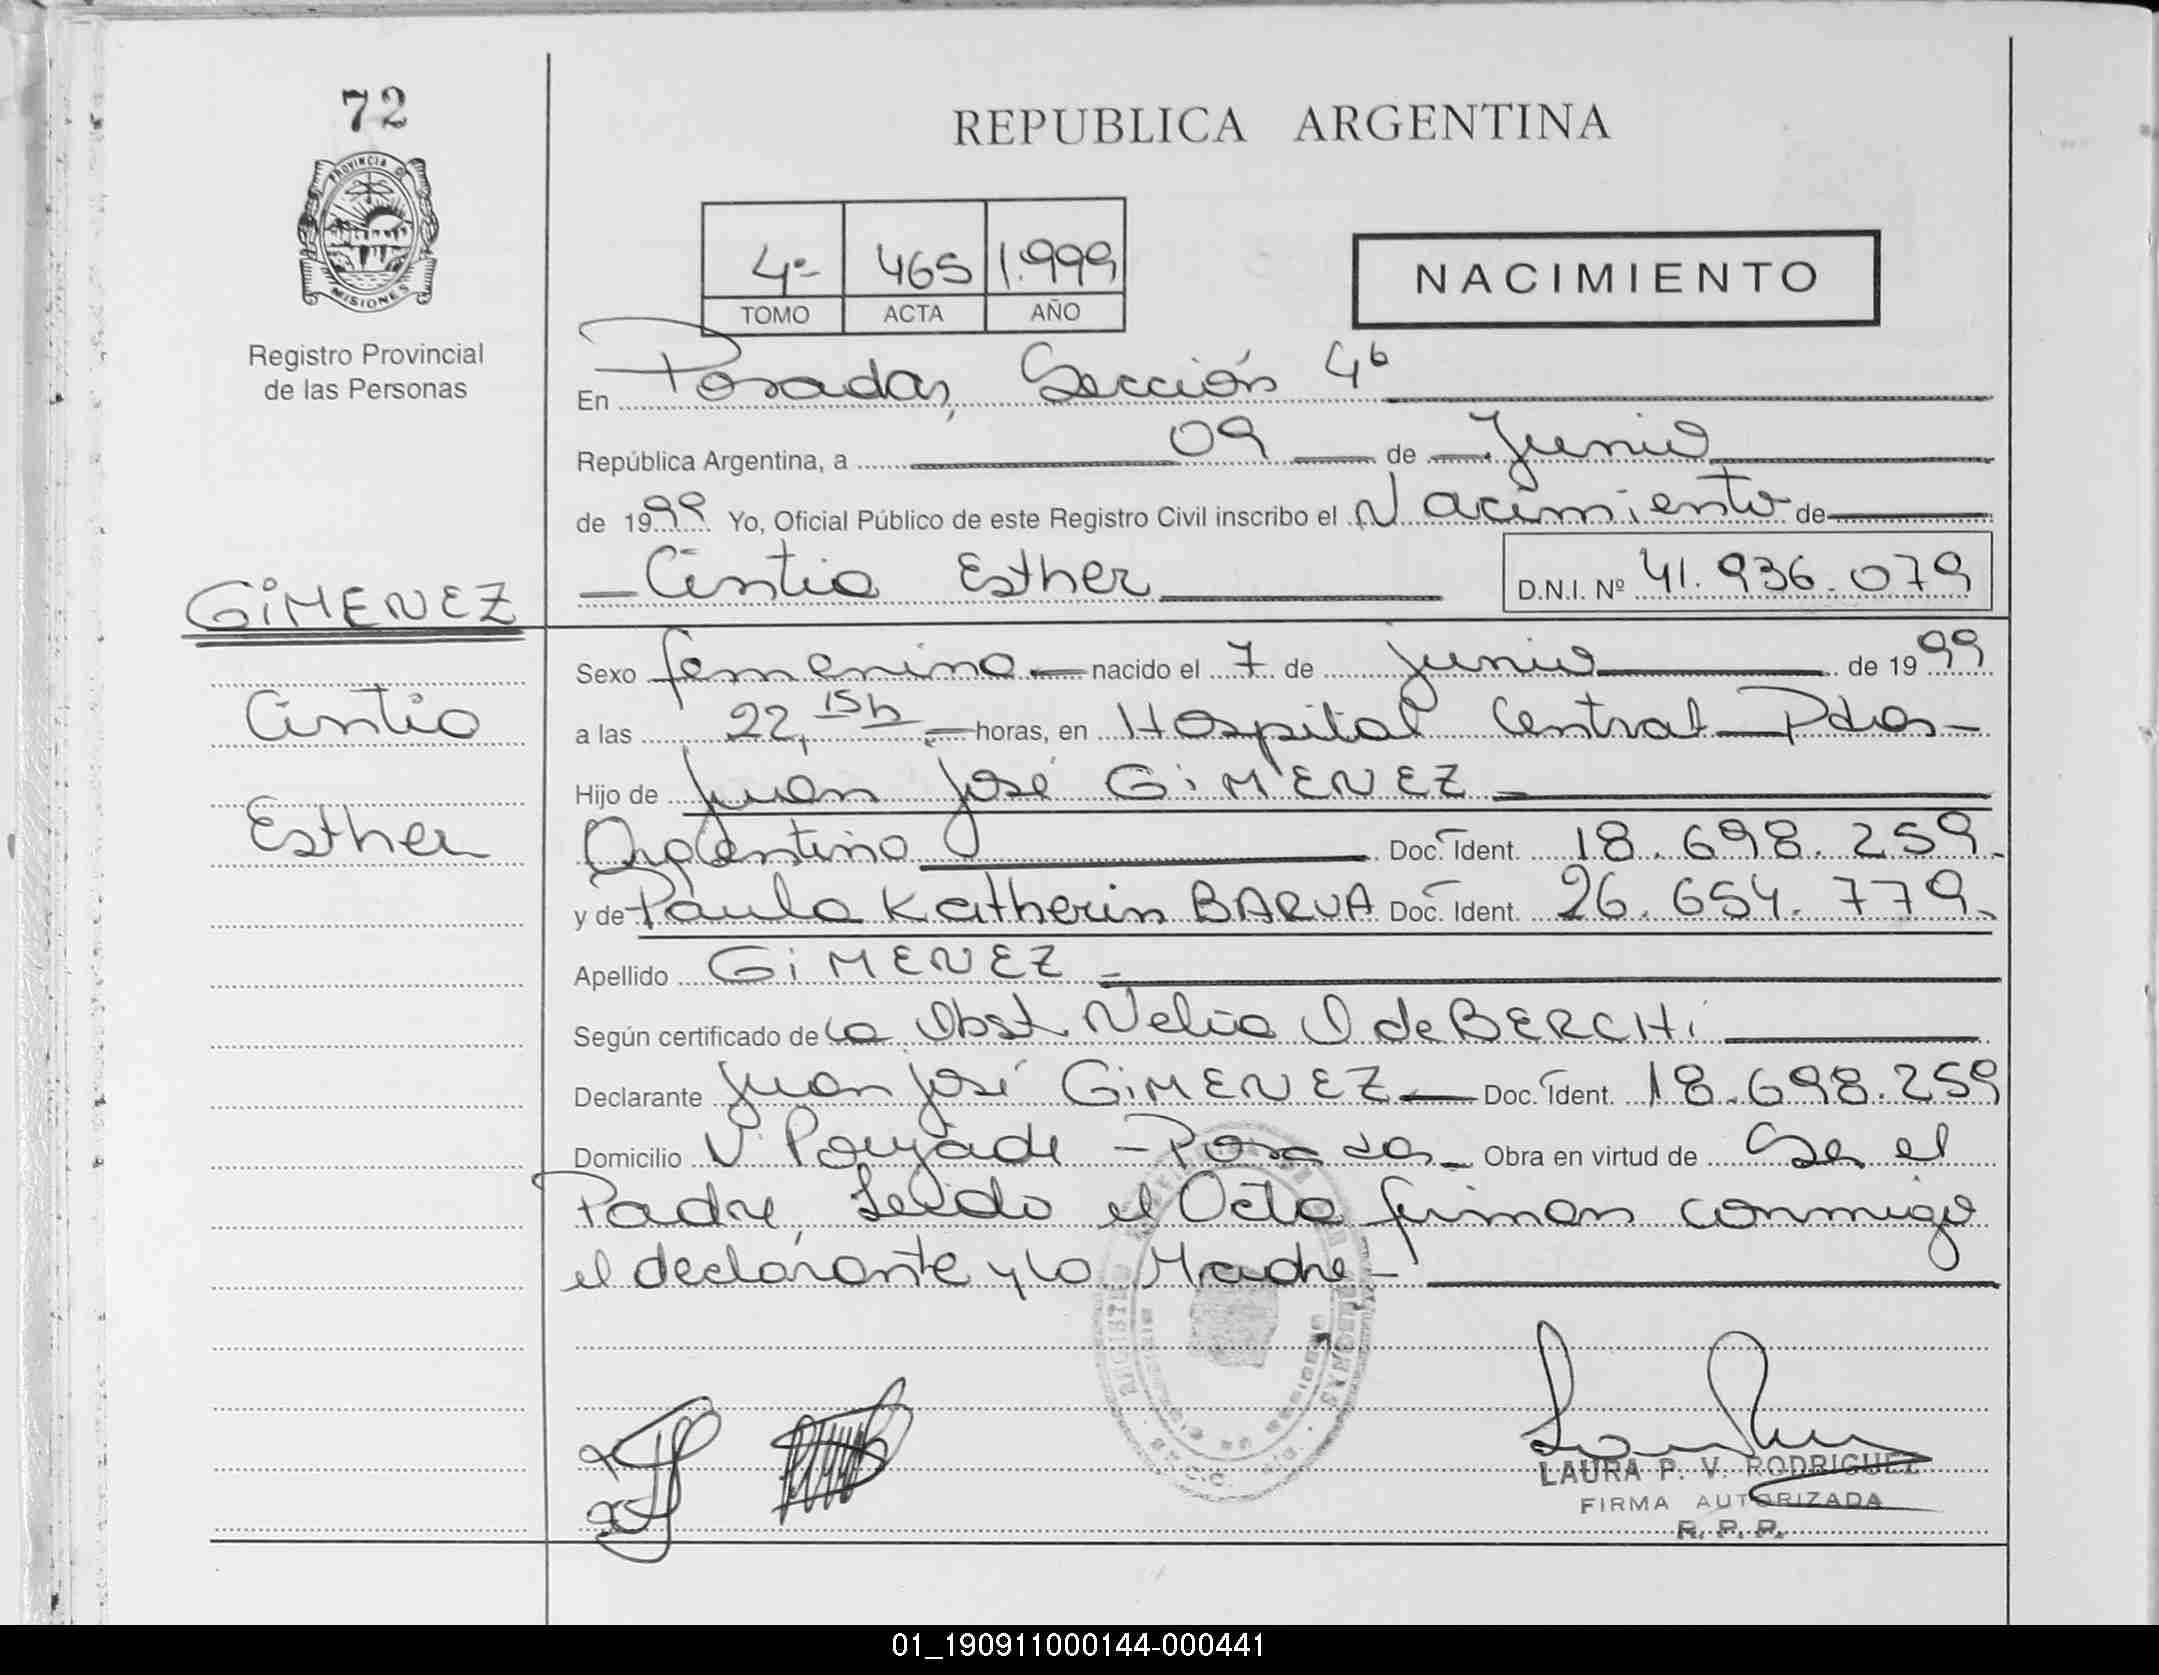 72
PROVINCIA D
MISIONES
Registro Provincial
de las Personas
REPUBLICA ARGENTINA
4º 465 1.999
TOMO ACTA AÑO
NACIMIENTO
En Posadas, Sección 4ª
República Argentina, a 09 de Junio
de 1999 Yo, Oficial Público de este Registro Civil inscribo el Nacimiento de
Cintia Esther D.N.I. Nº 41.936.079
GiMENEZ
Cintia
Esther
Sexo femenino nacido el 7 de junio de 1999
a las 22,15h horas, en Hospital Central Pdas
Hijo de Juan José GiMENEZ
Argentino Doc. Ident. 18.698.259
y de Paula Katherin BARUA Doc. Ident. 26.654.779
Apellido GiMENEZ
Según certificado de la Obst. Nelia O de BERCHi
Declarante Juan José GiMENEZ Doc. Ident. 18.698.259
Domicilio V. Poujade - Posadas Obra en virtud de Ser el
Padre, Leído el Acta firman conmigo
el declarante y la Madre
LAURA P. V. RODRIGUEZ
FIRMA AUTORIZADA
R. P. P.
01_190911000144-000441